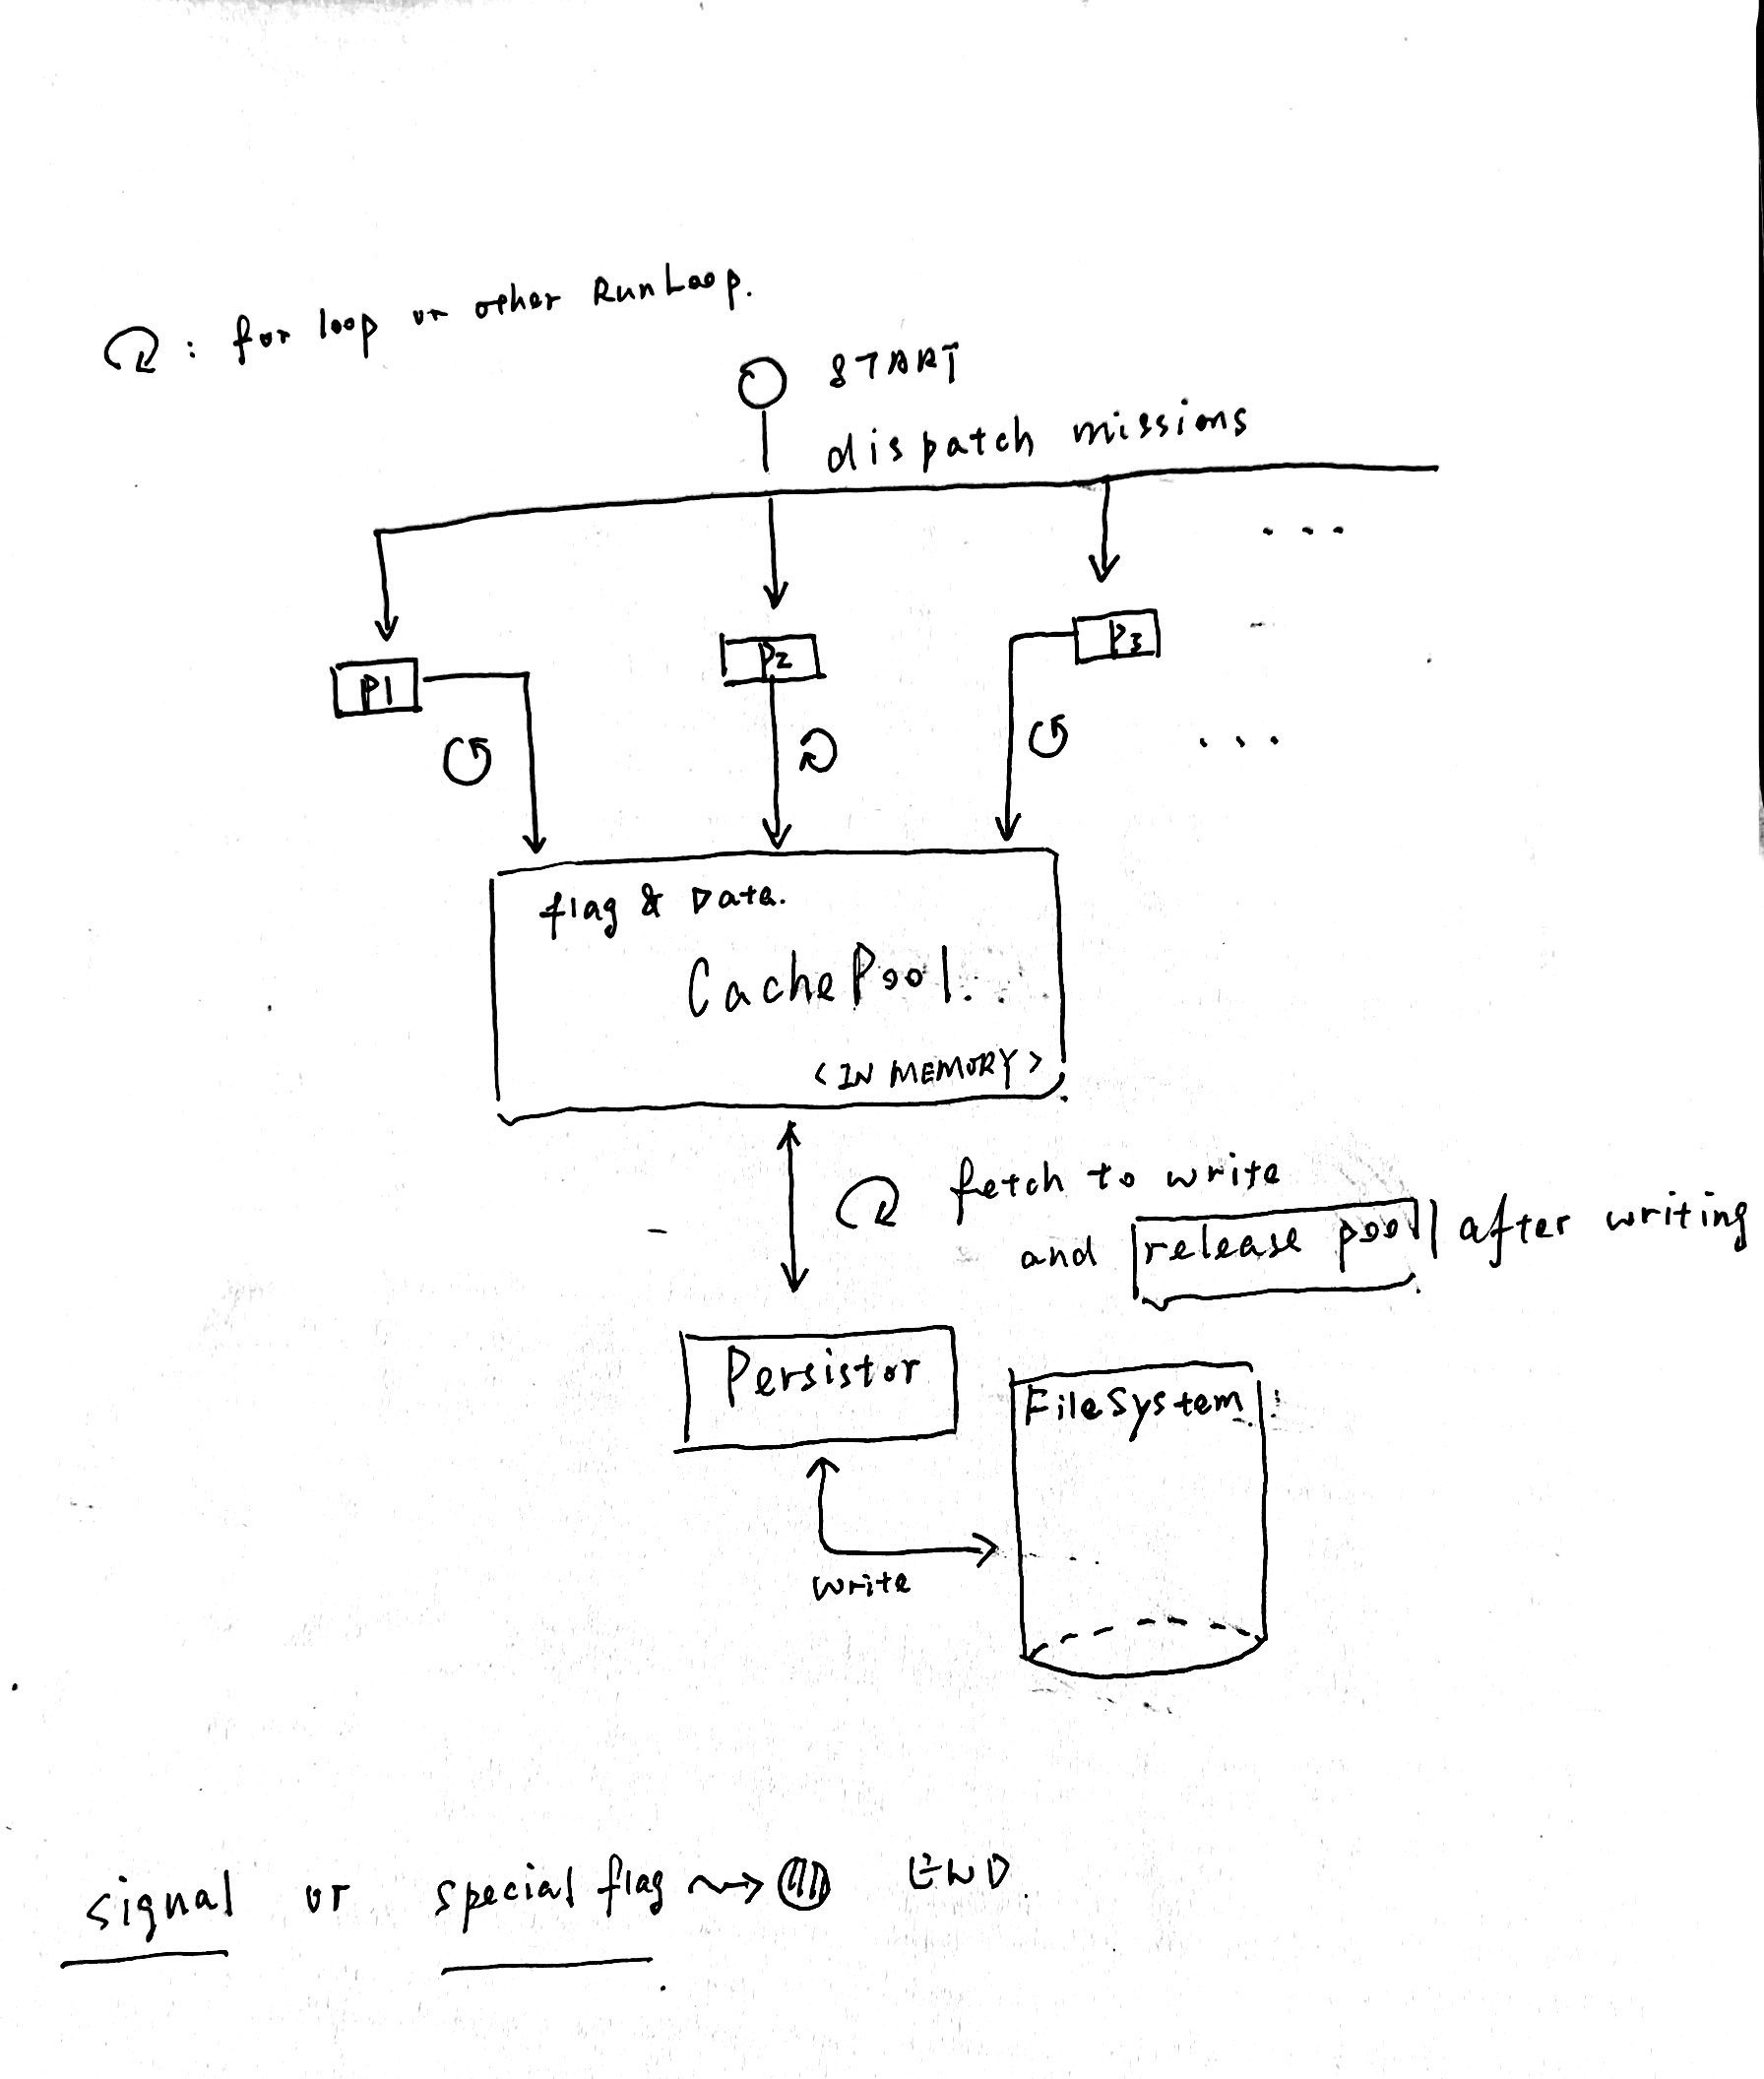 : for loop or other RunLoop.
START
dispatch missions
...
P1
P2
P3
...
flag & Data.
CachePool..
<IN MEMORY>
fetch to write
and release pool after writing
Persistor
FileSystem
write
signal or special flag END.